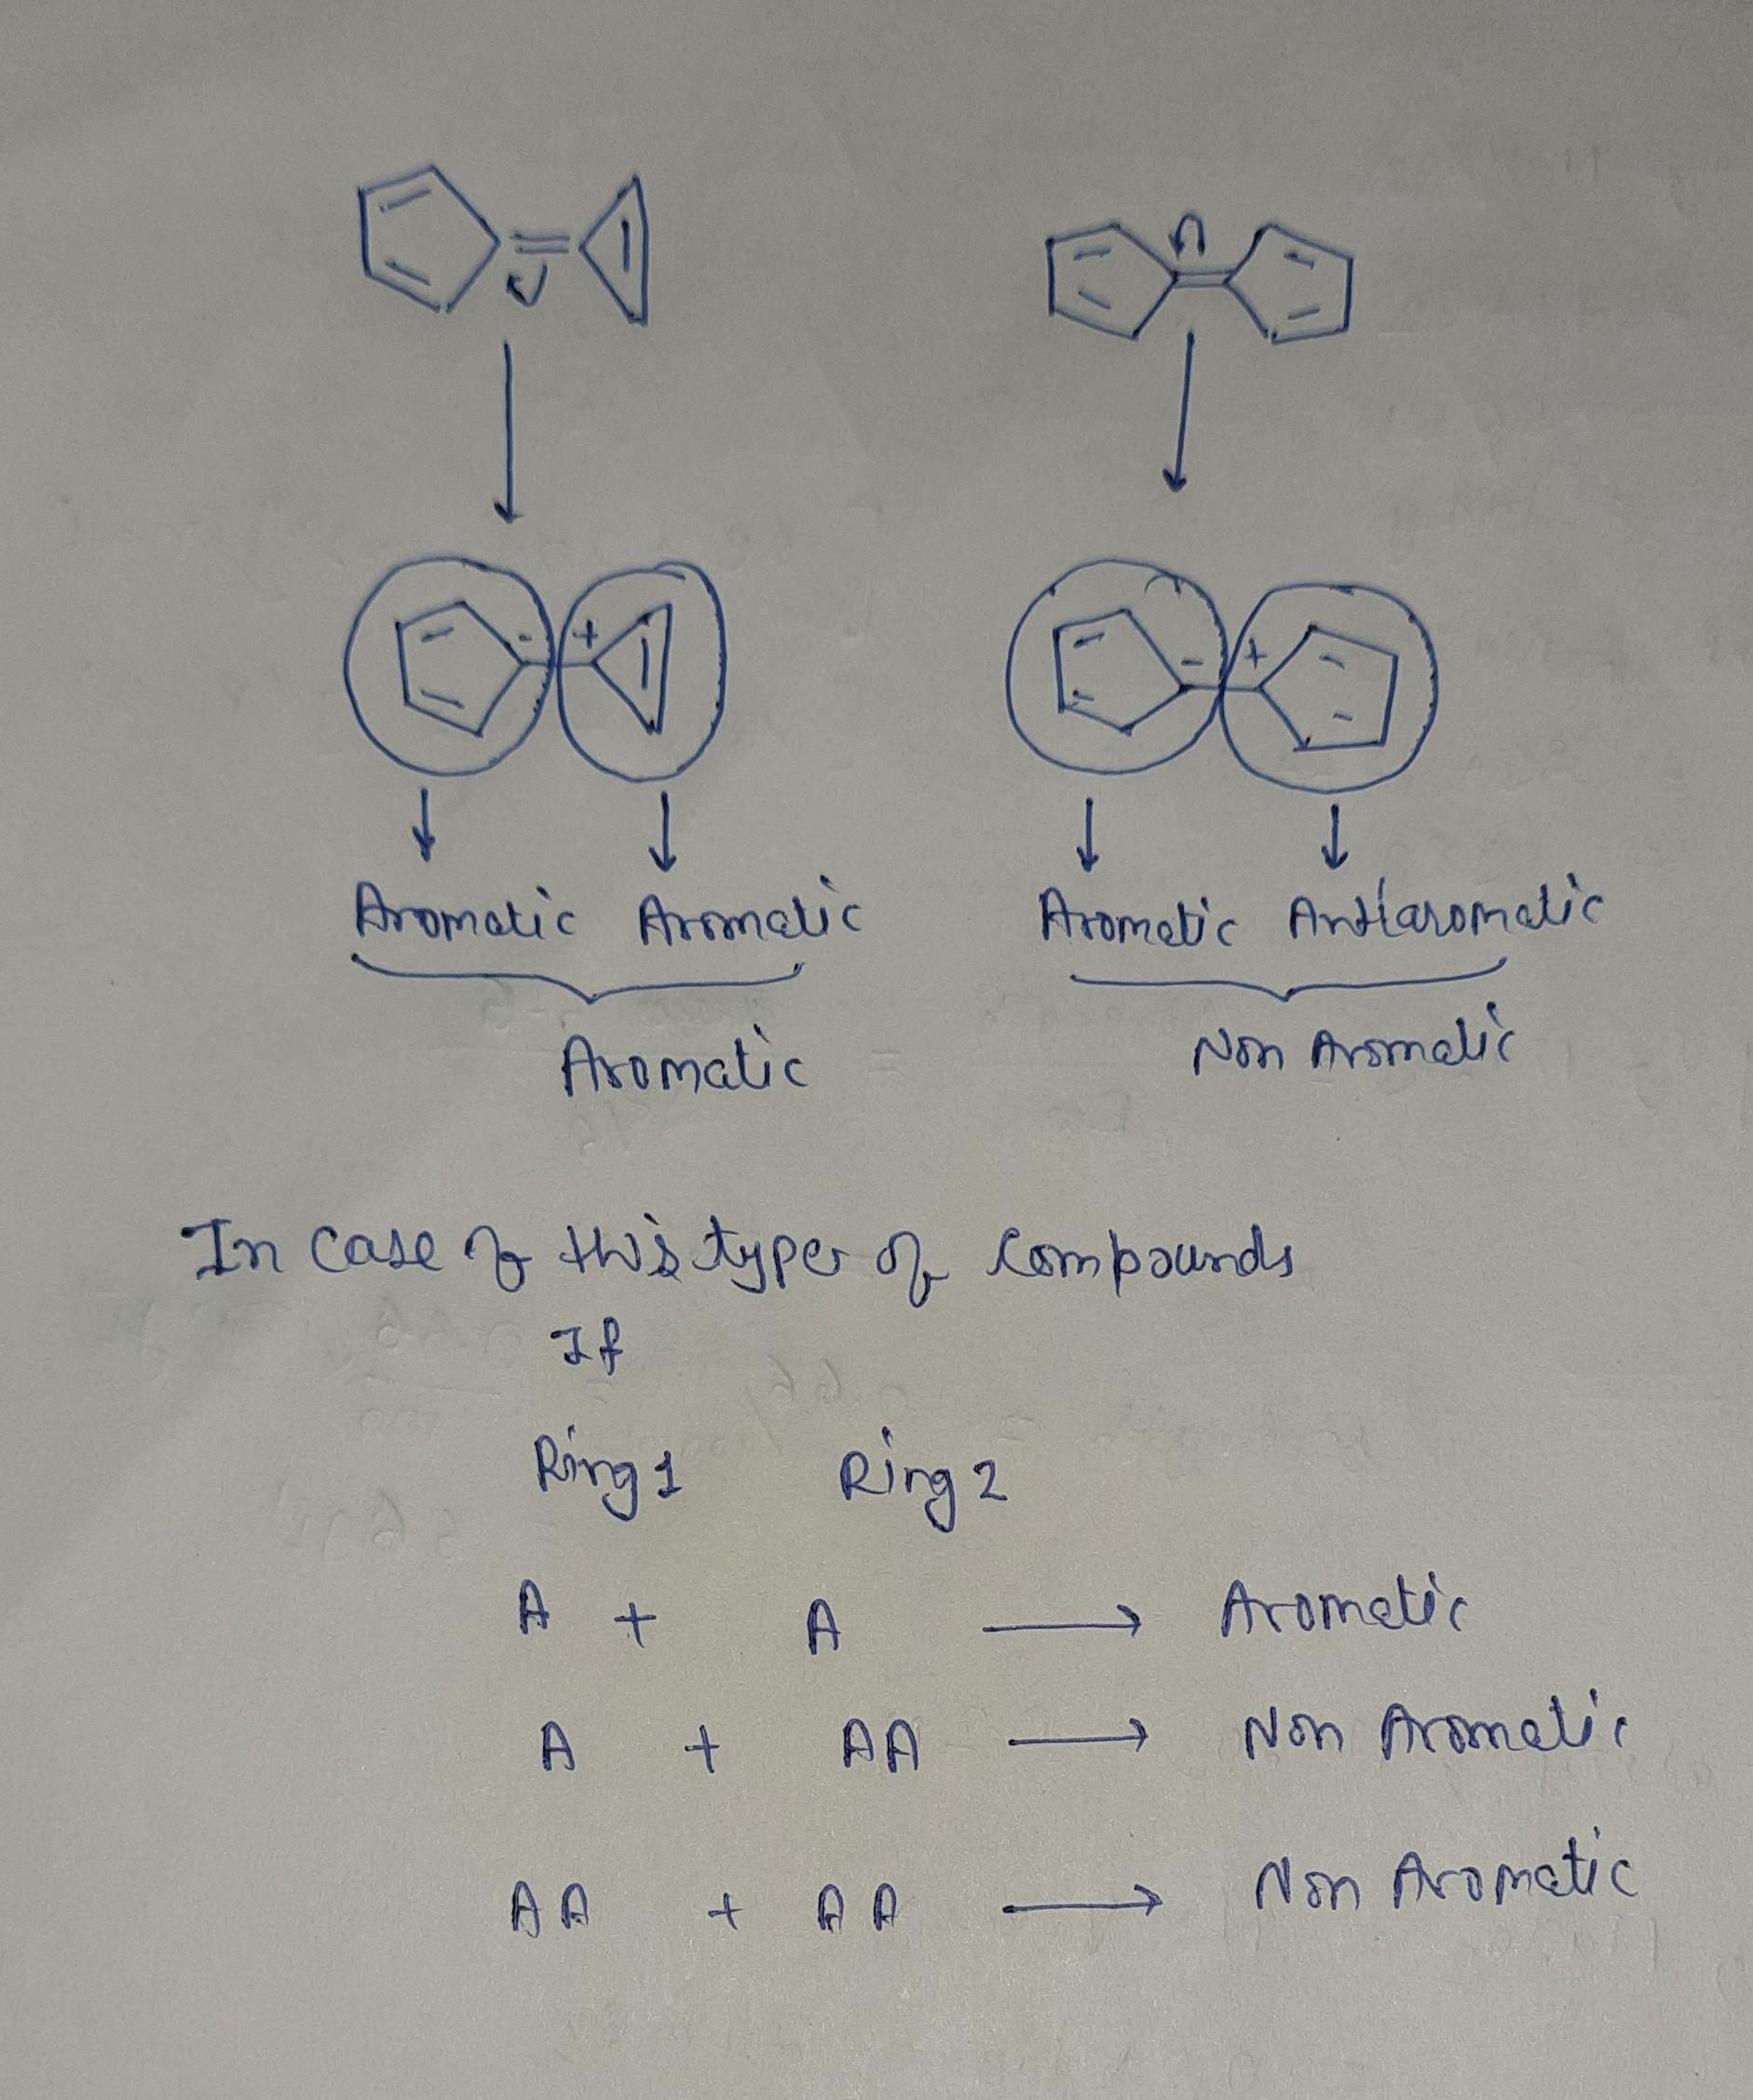 - +
- +
Aromatic Aromatic Aromatic Antiaromatic
Aromatic Non Aromatic
In case of this type of compounds
If
Ring 1 Ring 2
A + A → Aromatic
A + AA → Non Aromatic
AA + AA → Non Aromatic